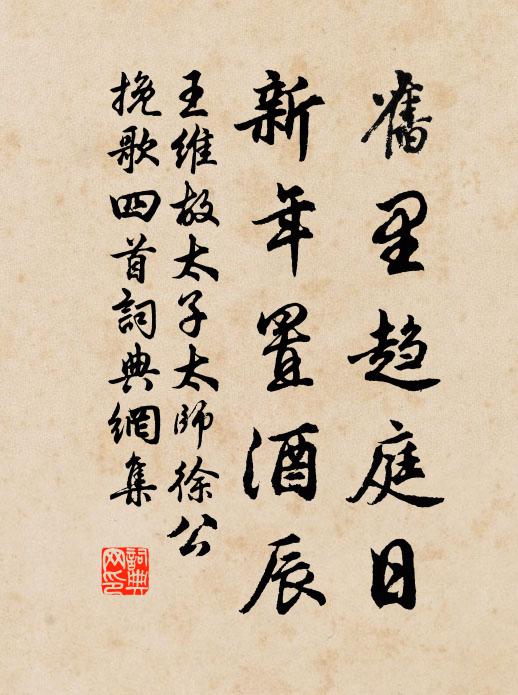 舊里趨庭日
新年置酒辰
王維故太子太師徐公
挽歌四首詞典網集
詞典
网印